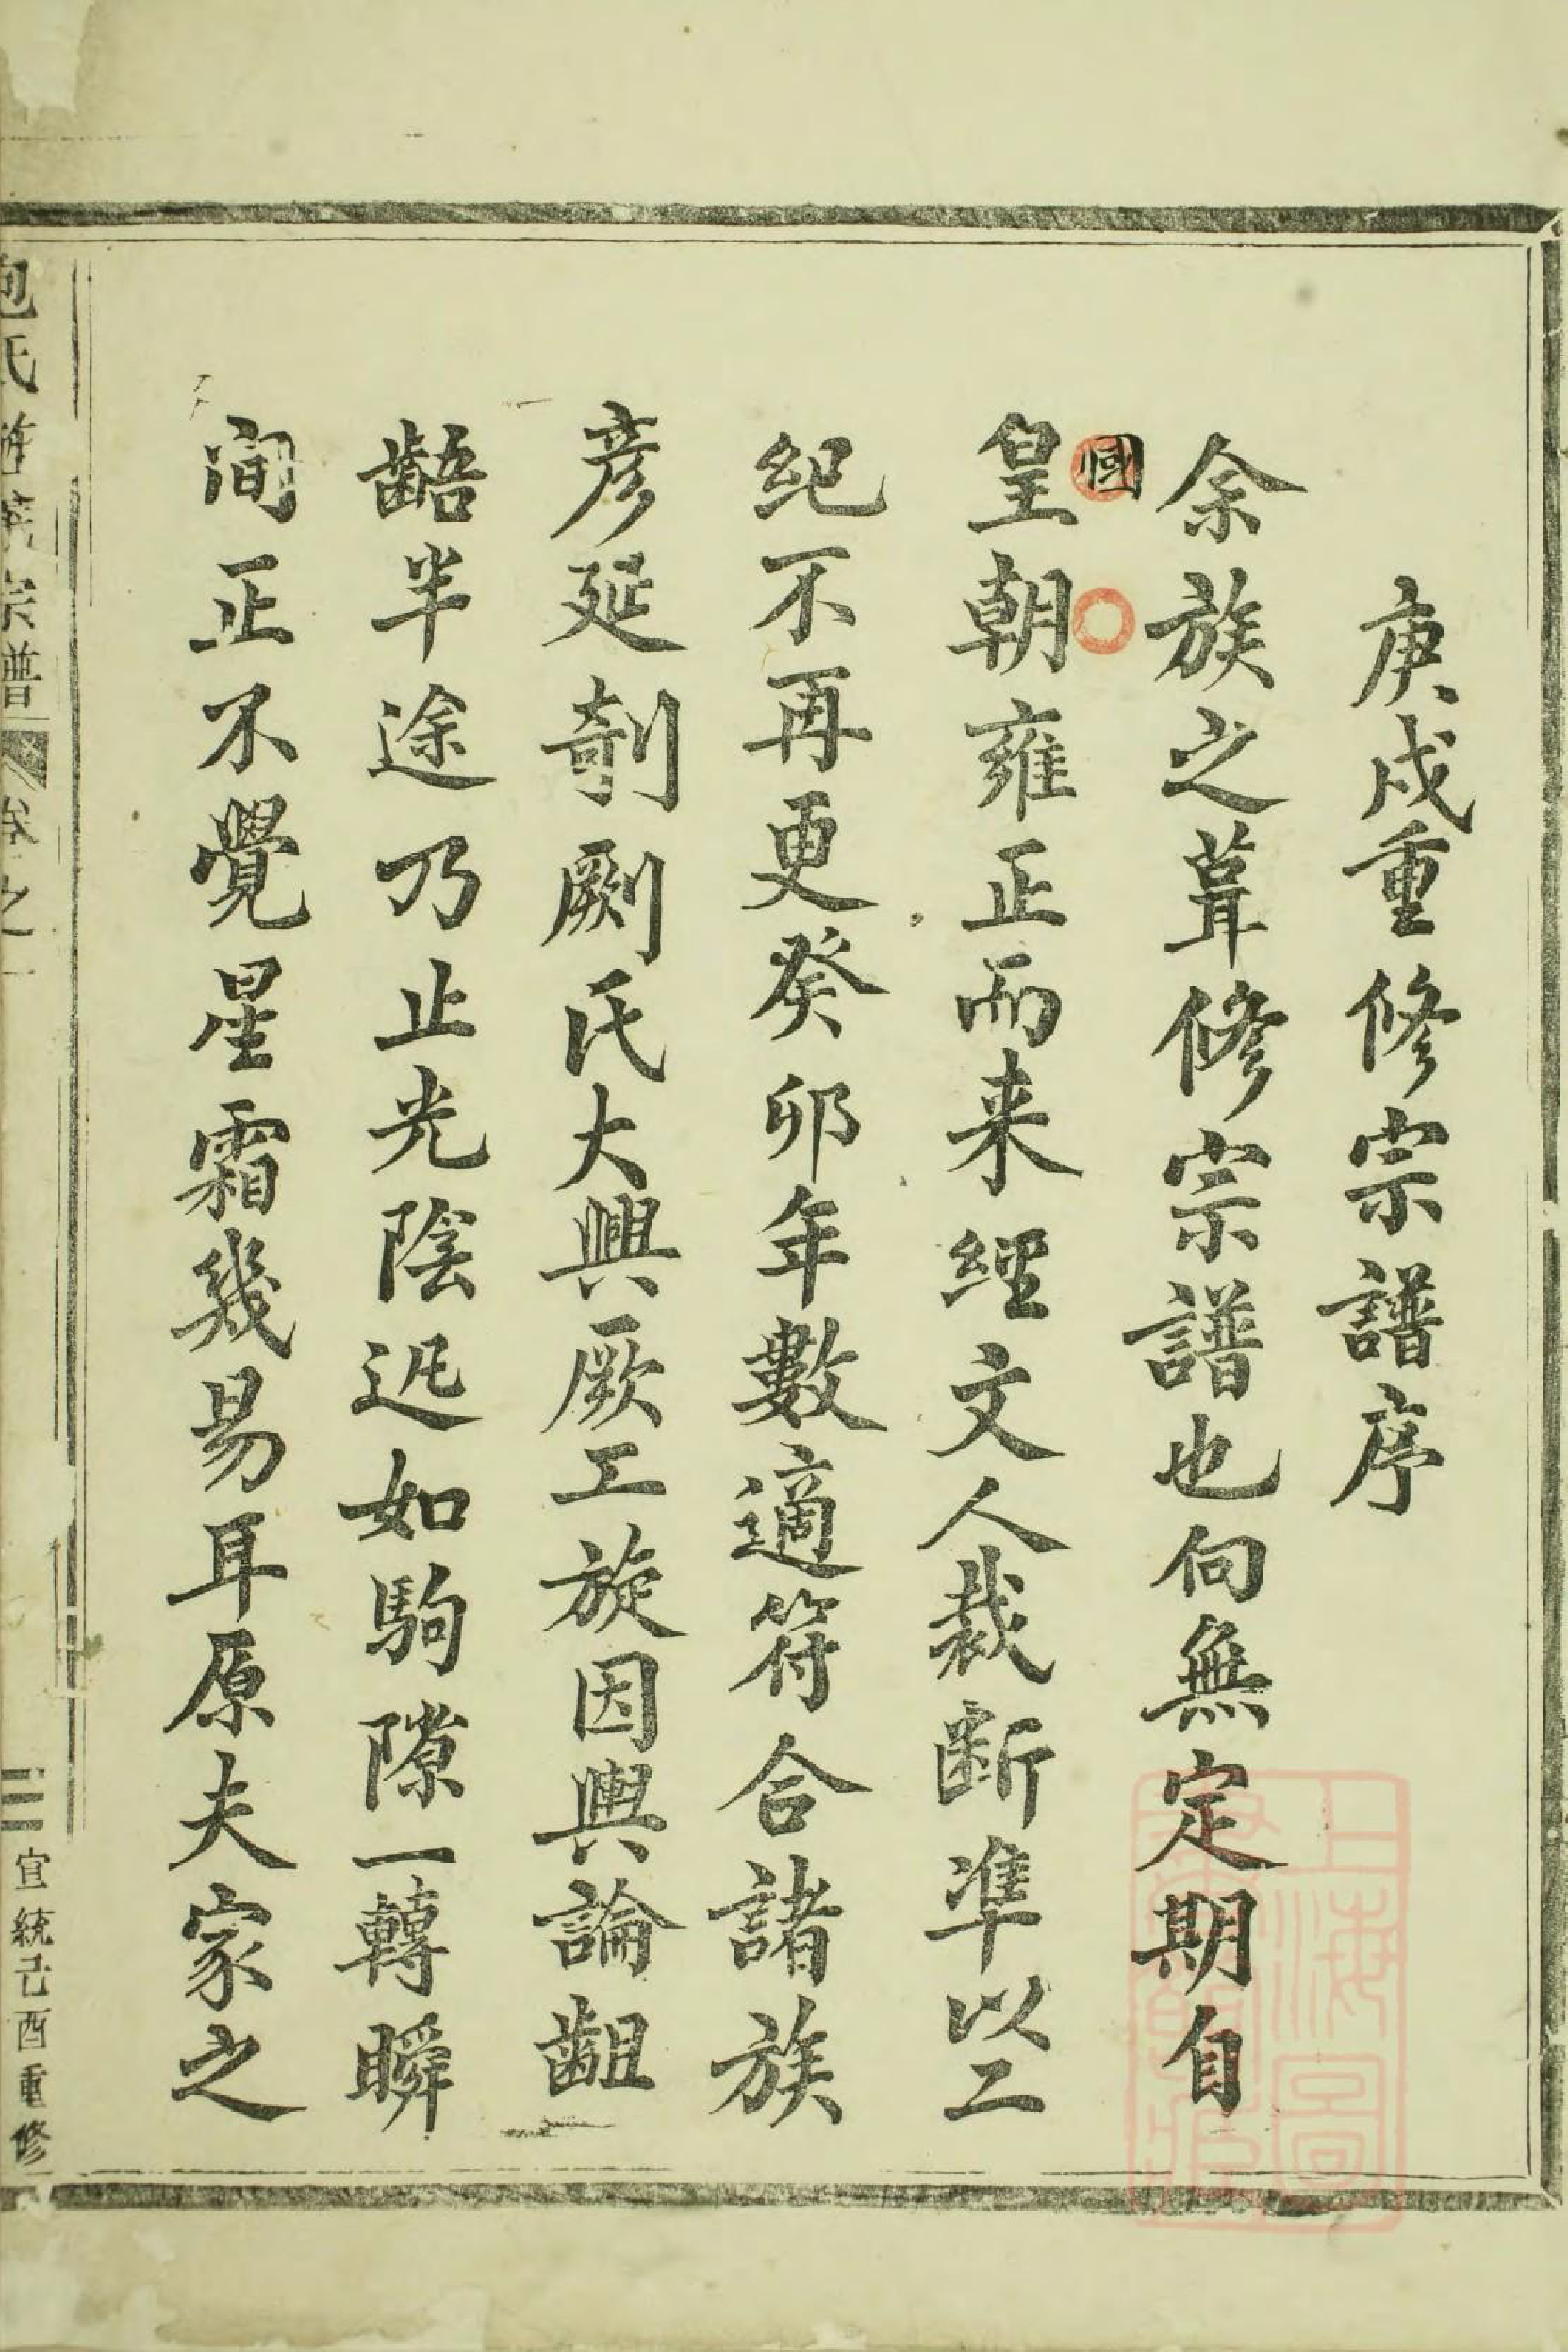 庚戌重修宗譜序
余族之葺修宗譜也向無定期自
國
皇朝雍正而来經文人裁断準以二
紀不再更癸卯年數適符合諸族
彦延剞劂氏大興厥工旋因輿論齟
齬半途乃止光陰迅如駒隙一轉瞬
间正不覺星霜幾易耳原夫家之
包氏 宗譜
卷之一
三
宣統己酉重修
上海圖